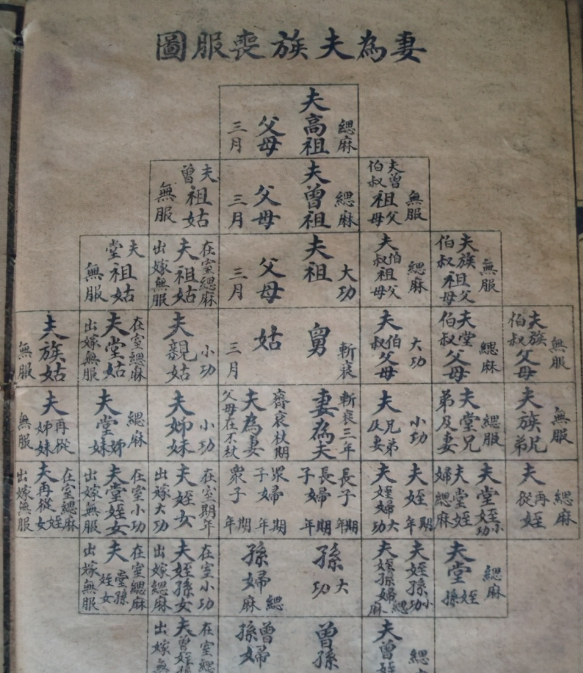 妻為夫族喪服圖
夫高祖父母 緦麻三月
夫曾伯叔祖父母 無服
夫曾祖父母 緦麻三月
夫曾祖姑 無服
夫族伯叔祖父母 無服
夫伯叔祖父母 緦麻
夫祖父母 大功三月
夫祖姑 在室緦麻 出嫁無服
夫堂祖姑 無服
夫族伯叔父母 無服
夫堂伯叔父母 緦麻
夫伯叔父母 大功
舅姑 斬衰三月
夫親姑 小功
夫堂姑 在室緦麻 出嫁無服
夫族姑 無服
夫族兄弟 無服
夫堂兄弟及妻 緦服
夫兄弟及妻 小功
妻為夫 斬衰三年
夫為妻 齊衰杖期 父母在不杖
夫姊妹 小功
夫堂姊妹 緦麻
夫再從姊妹 無服
夫再從姪 緦麻
夫堂姪 小功
夫堂姪婦 緦麻
夫姪 期年
夫姪婦 大功
長子 期年
長子婦 期年
眾子婦 期
眾子 年 大功
夫姪女 在室期年 出嫁大功
夫堂姪女 在室小功 出嫁無服
夫再從姪女 在室緦麻 出嫁無服
夫堂姪孫 緦麻
夫姪孫 小功
夫姪孫婦 緦麻
孫 大功
孫婦 緦麻
夫姪孫女 在室小功 出嫁緦麻
夫堂孫姪女 在室緦麻 出嫁無服
夫曾姪 緦
曾孫
曾孫婦
夫曾姪孫 在室緦 出嫁無